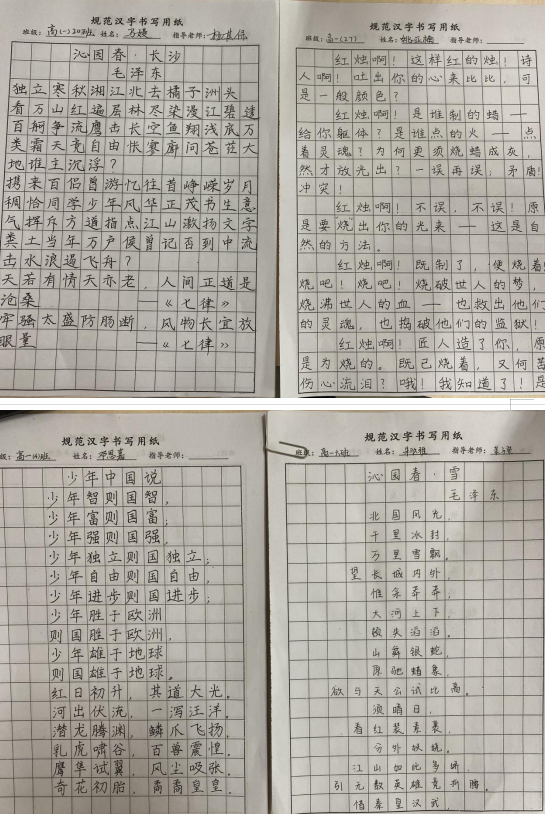 规范汉字书写用纸
班级：高(一)20班 姓名： 指导老师：
沁园春·长沙
毛泽东
独立寒秋湘江北去橘子洲头
看万山红遍层林尽染漫江碧透
百舸争流鹰击长空鱼翔浅底万
类霜天竞自由怅寥廓问苍茫大
地谁主沉浮？
携来百侣曾游忆往昔峥嵘岁月
稠恰同学少年风华正茂书生意
气挥斥方遒指点江山激扬文字
粪土当年万户侯曾记否到中流
击水浪遏飞舟？
天若有情天亦老，人间正道是
沧桑 ——《七律》
牢骚太盛防肠断，风物长宜放
眼量 ——《七律》
规范汉字书写用纸
班级：高一(27) 姓名： 指导老师：
红烛啊！这样红的烛！诗
人啊！吐出你的心来比比，可
是一般颜色？
红烛啊！是谁制的蜡——
给你躯体？是谁点的火——点
着灵魂？为何更须烧蜡成灰，
然才放光出？一误再误；矛盾！
冲突！
红烛啊！不误，不误！原
是要“烧”出你的光来——这是自
然的方法。
红烛啊！既制了，便烧着！
烧吧！烧吧！烧破世人的梦，
烧沸世人的血——也救出他们
的灵魂，也捣破他们的监狱！
红烛啊！匠人造了你，原
是为烧的。既已烧着，又何苦
伤心流泪？哦！我知道了！是
规范汉字书写用纸
班级：高一(4)班 姓名：邓思嘉 指导老师：
少年中国说
少年智则国智，
少年富则国富；
少年强则国强，
少年独立则国独立；
少年自由则国自由，
少年进步则国进步；
少年胜于欧洲
则国胜于欧洲，
少年雄于地球
则国雄于地球。
红日初升，其道大光。
河出伏流，一泻汪洋。
潜龙腾渊，鳞爪飞扬。
乳虎啸谷，百兽震惶。
鹰隼试翼，风尘吸张。
奇花初胎，矞矞皇皇。
规范汉字书写用纸
班级： 姓名： 指导老师：
沁园春·雪
毛泽东
北国风光，
千里冰封，
万里雪飘。
望长城内外，
惟余莽莽，
大河上下，
顿失滔滔。
山舞银蛇，
原驰蜡象，
欲与天公试比高。
须晴日，
看红装素裹，
分外妖娆。
江山如此多娇，
引无数英雄竞折腰。
惜秦皇汉武，